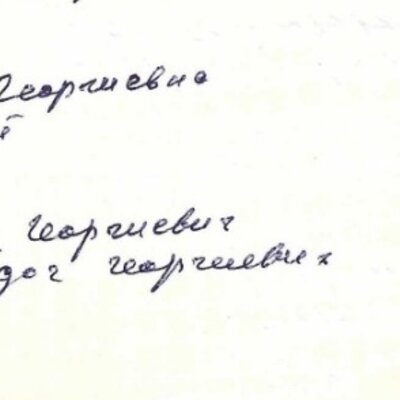 Георгиевна
Георгиевич
дог георгиевих